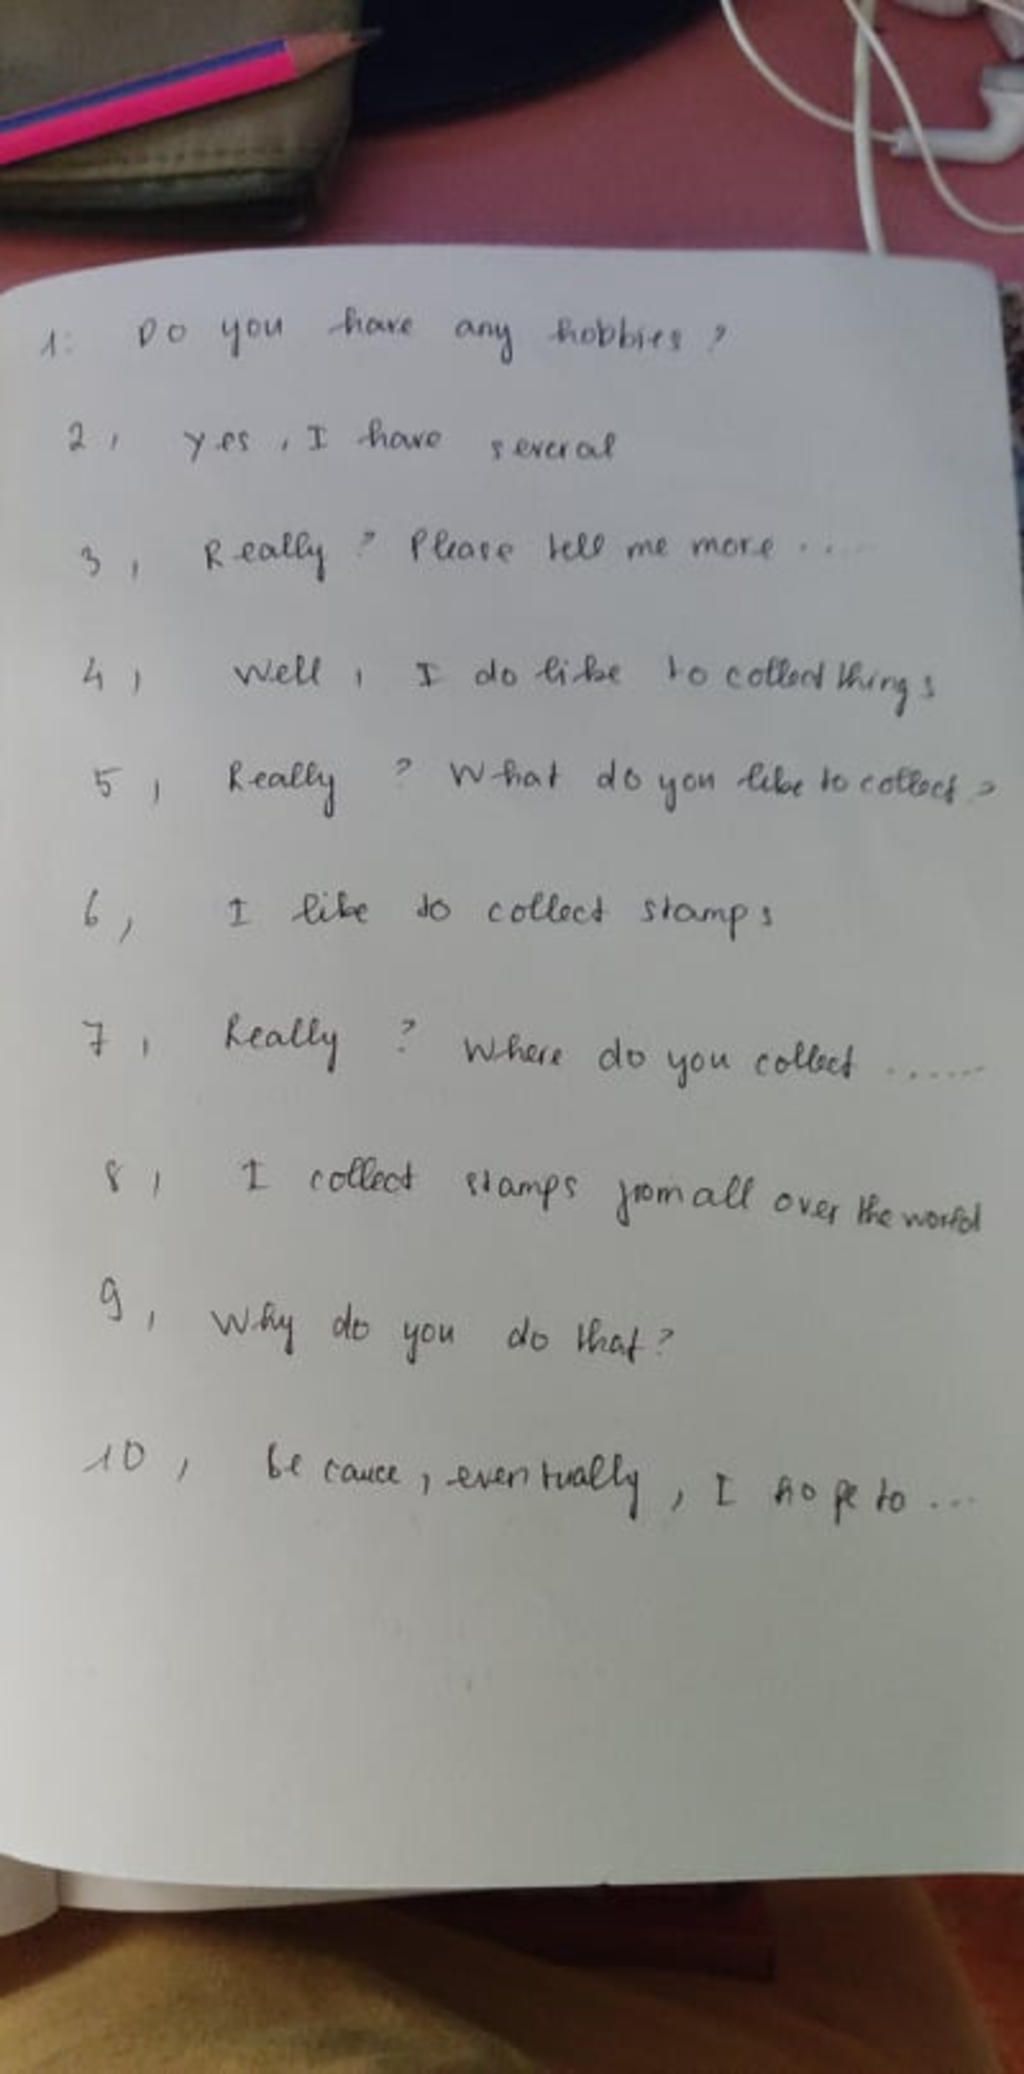 1: Do you have any hobbies?
2, yes, I have several
3, Really? Please tell me more .....
4, Well, I do like to collect things
5, Really? What do you like to collect?
6, I like to collect stamps
7, Really? Where do you collect ......
8, I collect stamps from all over the world
9, Why do you do that?
10, be cause, eventually, I hope to ...